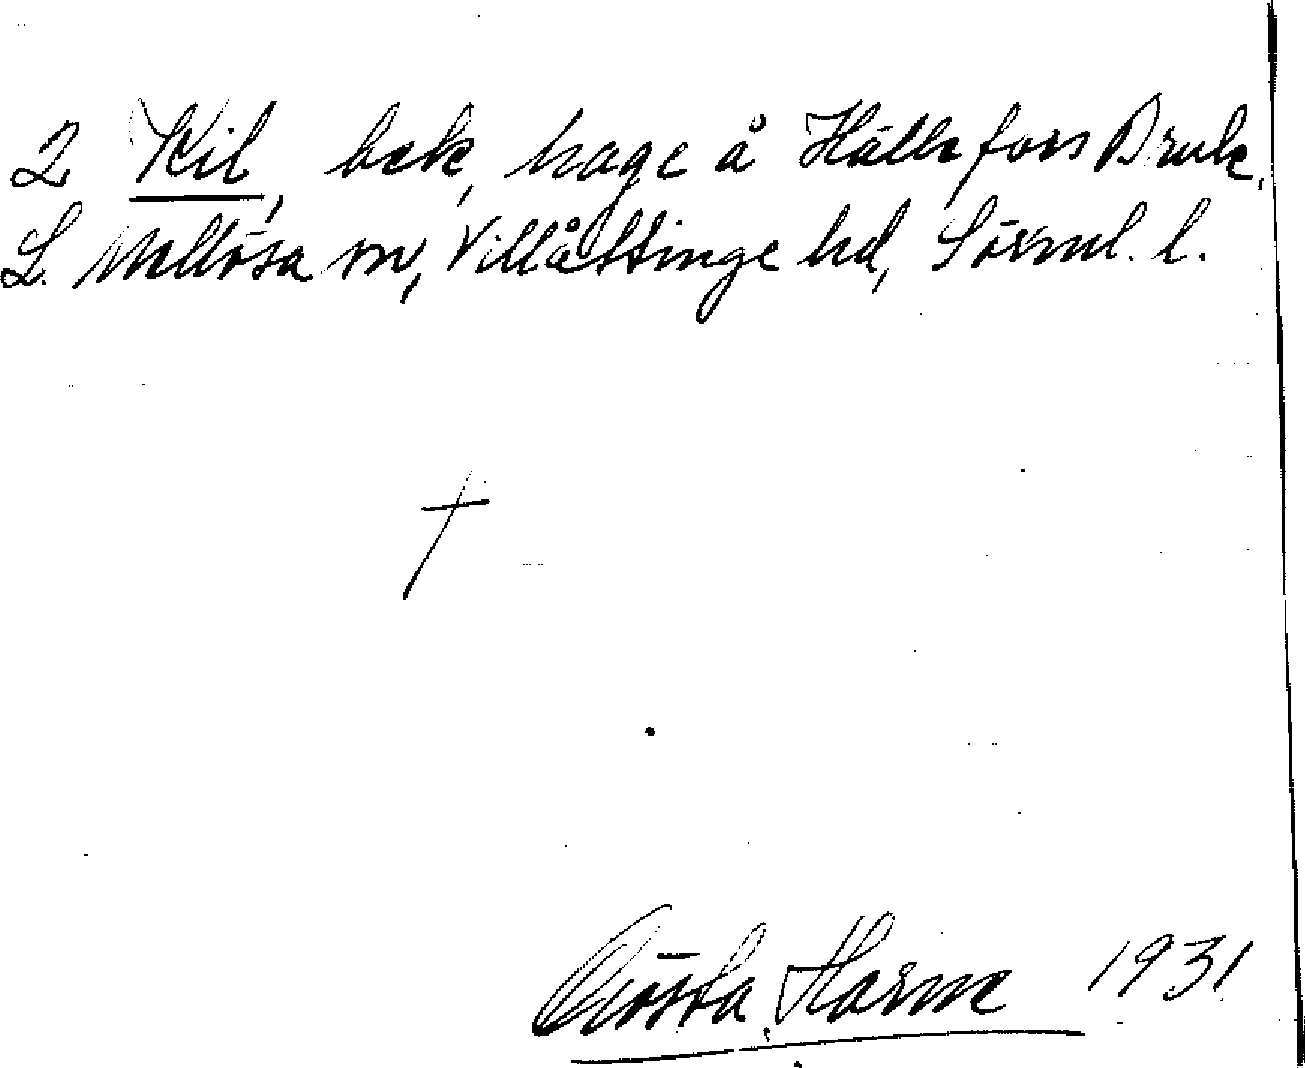 2 Kil, bek, hage å Hälleforsbruk,
L. Mellösa sn, Villåttinge hd, Sörml. l.
Gösta Harme 1931